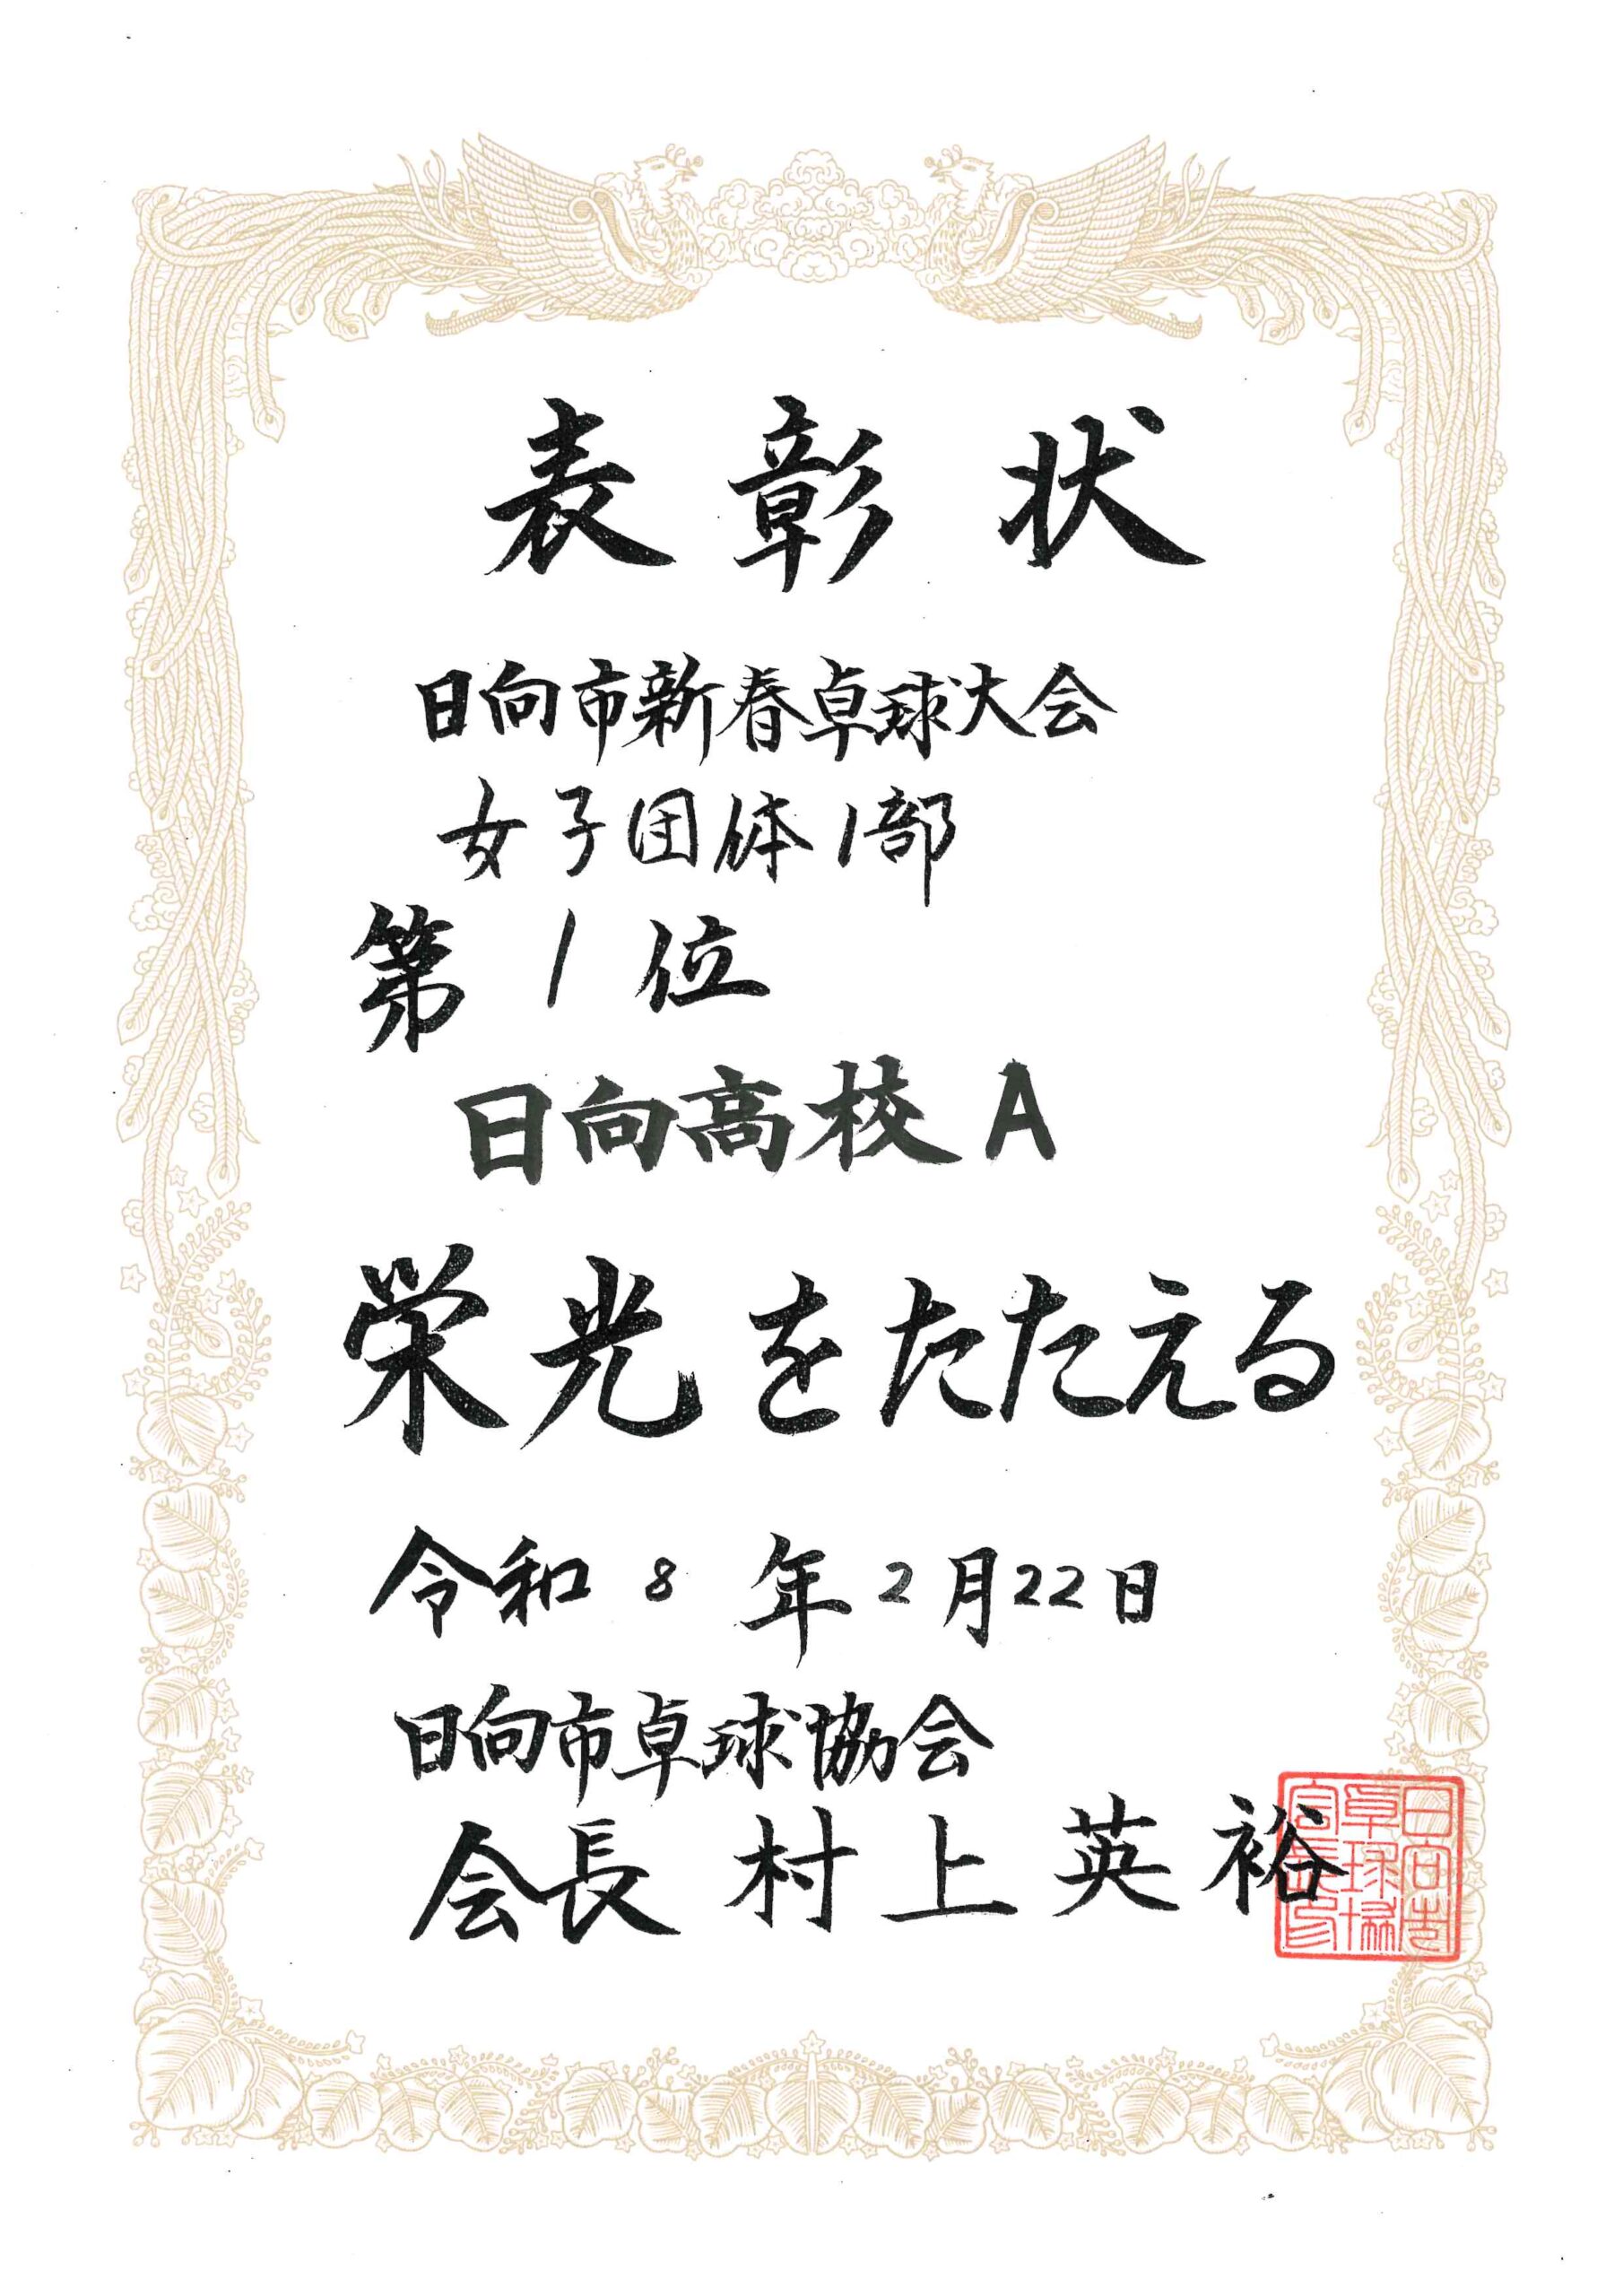 表彰状
日向市新春卓球大会
女子団体1部
第1位
日向高校A
栄光をたたえる
令和8年2月22日
日向市卓球協会
会長 村上英裕
日向市卓球協会会長印